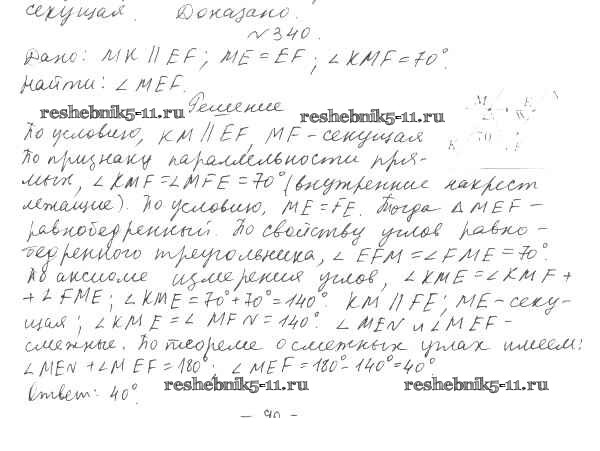 секущая. Доказано.
№340.
Дано: MK || EF; ME = EF; ∠KMF = 70°.
Найти: ∠MEF.
Решение
reshebnik5-11.ru reshebnik5-11.ru
По условию, KM || EF, MF - секущая
По признаку параллельности пря-
мых, ∠KMF = ∠MFE = 70° (внутренние накрест
лежащие). По условию, ME = FE. Тогда △MEF -
равнобедренный. По свойству углов равно-
бедренного треугольника, ∠EFM = ∠FME = 70°.
По аксиоме измерения углов, ∠KME = ∠KMF +
+ ∠FME; ∠KME = 70° + 70° = 140°. KM || FE; ME - секу-
щая; ∠KME = ∠MFN = 140°. ∠MEN и ∠MEF -
смежные. По теореме о смежных углах имеем:
∠MEN + ∠MEF = 180°; ∠MEF = 180° - 140° = 40°
reshebnik5-11.ru reshebnik5-11.ru
Ответ: 40°.
- 90 -